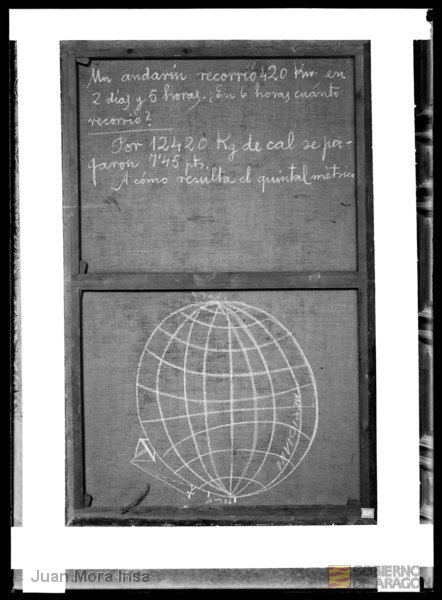 Un andarín recorrió 420 Km. en
2 días y 5 horas. ¿En 6 horas cuánto
recorrió?
Por 12420 Kg de cal se pa-
garon 7'45 pts.
A cómo resulta el quintal métrico
Juan Mora Insa
GOBIERNO
DE ARAGON